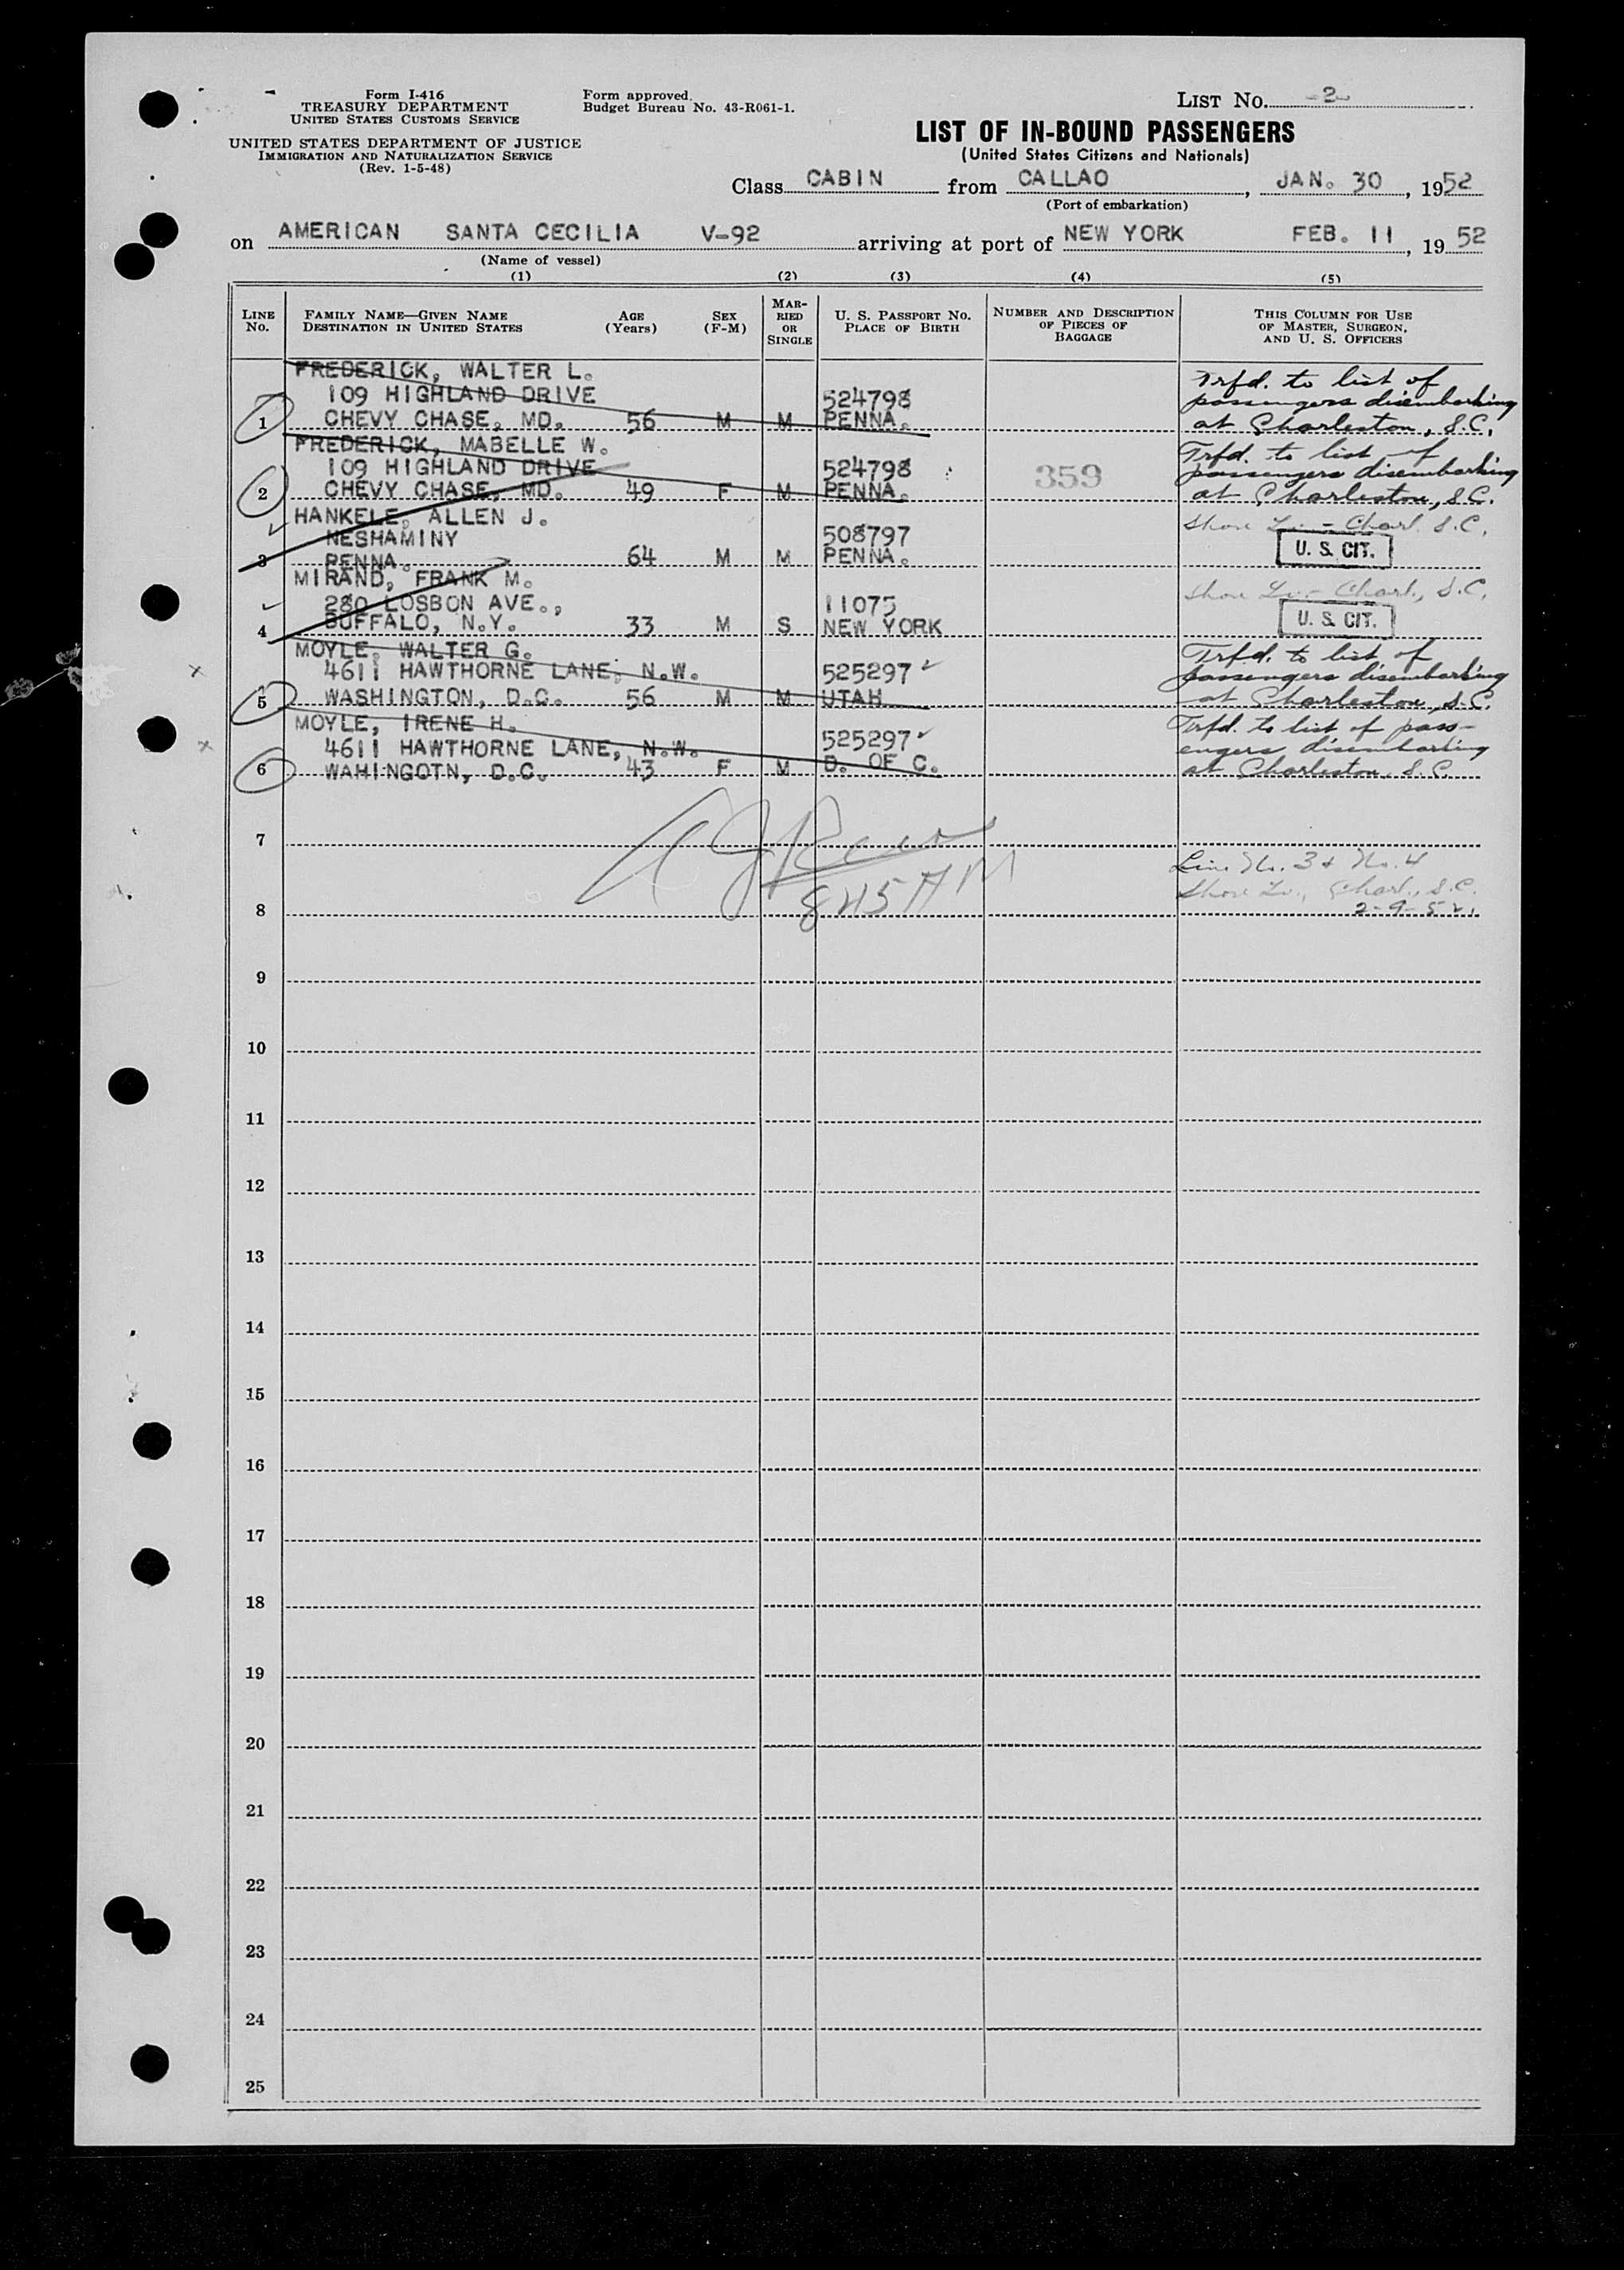 Form I-416
TREASURY DEPARTMENT
UNITED STATES CUSTOMS SERVICE
UNITED STATES DEPARTMENT OF JUSTICE
IMMIGRATION AND NATURALIZATION SERVICE
(Rev. 1-5-48)
Form approved.
Budget Bureau No. 43-R061-1.
LIST NO. -2-
LIST OF IN-BOUND PASSENGERS
(United States Citizens and Nationals)
Class CABIN from CALLAO, JAN. 30, 1952
(Port of embarkation)
on AMERICAN SANTA CECILIA V-92 arriving at port of NEW YORK FEB. 11, 1952
(Name of vessel)
(1) (2) (3) (4) (5)
LINE No. FAMILY NAME—GIVEN NAME DESTINATION IN UNITED STATES AGE (Years) SEX (F-M) MARRIED OR SINGLE U. S. PASSPORT NO. PLACE OF BIRTH NUMBER AND DESCRIPTION OF PIECES OF BAGGAGE THIS COLUMN FOR USE OF MASTER, SURGEON, AND U. S. OFFICERS
FREDERICK, WALTER L. Trfd. to list of
109 HIGHLAND DRIVE 524798 passengers disembarking
1 CHEVY CHASE, MD. 56 M M PENNA. at Charleston, S.C.
FREDERICK, MABELLE W. Trfd. to list of
109 HIGHLAND DRIVE 524798 359 passengers disembarking
2 CHEVY CHASE, MD. 49 F M PENNA. at Charleston, S.C.
HANKELE, ALLEN J. Shore Lv. - Charl. S.C.
NESHAMINY 508797 U. S. CIT.
3 PENNA. 64 M M PENNA.
MIRAND, FRANK M. Shore Lv. - Charl., S.C.
280 LOSBON AVE., 11075 U. S. CIT.
4 BUFFALO, N.Y. 33 M S NEW YORK
MOYLE, WALTER G. Trfd. to list of
4611 HAWTHORNE LANE, N.W. 525297 passengers disembarking
5 WASHINGTON, D.C. 56 M M UTAH at Charleston, S.C.
MOYLE, IRENE H. Trfd. to list of pass-
4611 HAWTHORNE LANE, N.W. 525297 engers disembarking
6 WAHINGOTN, D.C. 43 F M D. OF C. at Charleston, S.C.
7
Line No. 3 & No. 4
845 AM Shore Lv., Charl., S.C.
8 2-9-52.
9
10
11
12
13
14
15
16
17
18
19
20
21
22
23
24
25